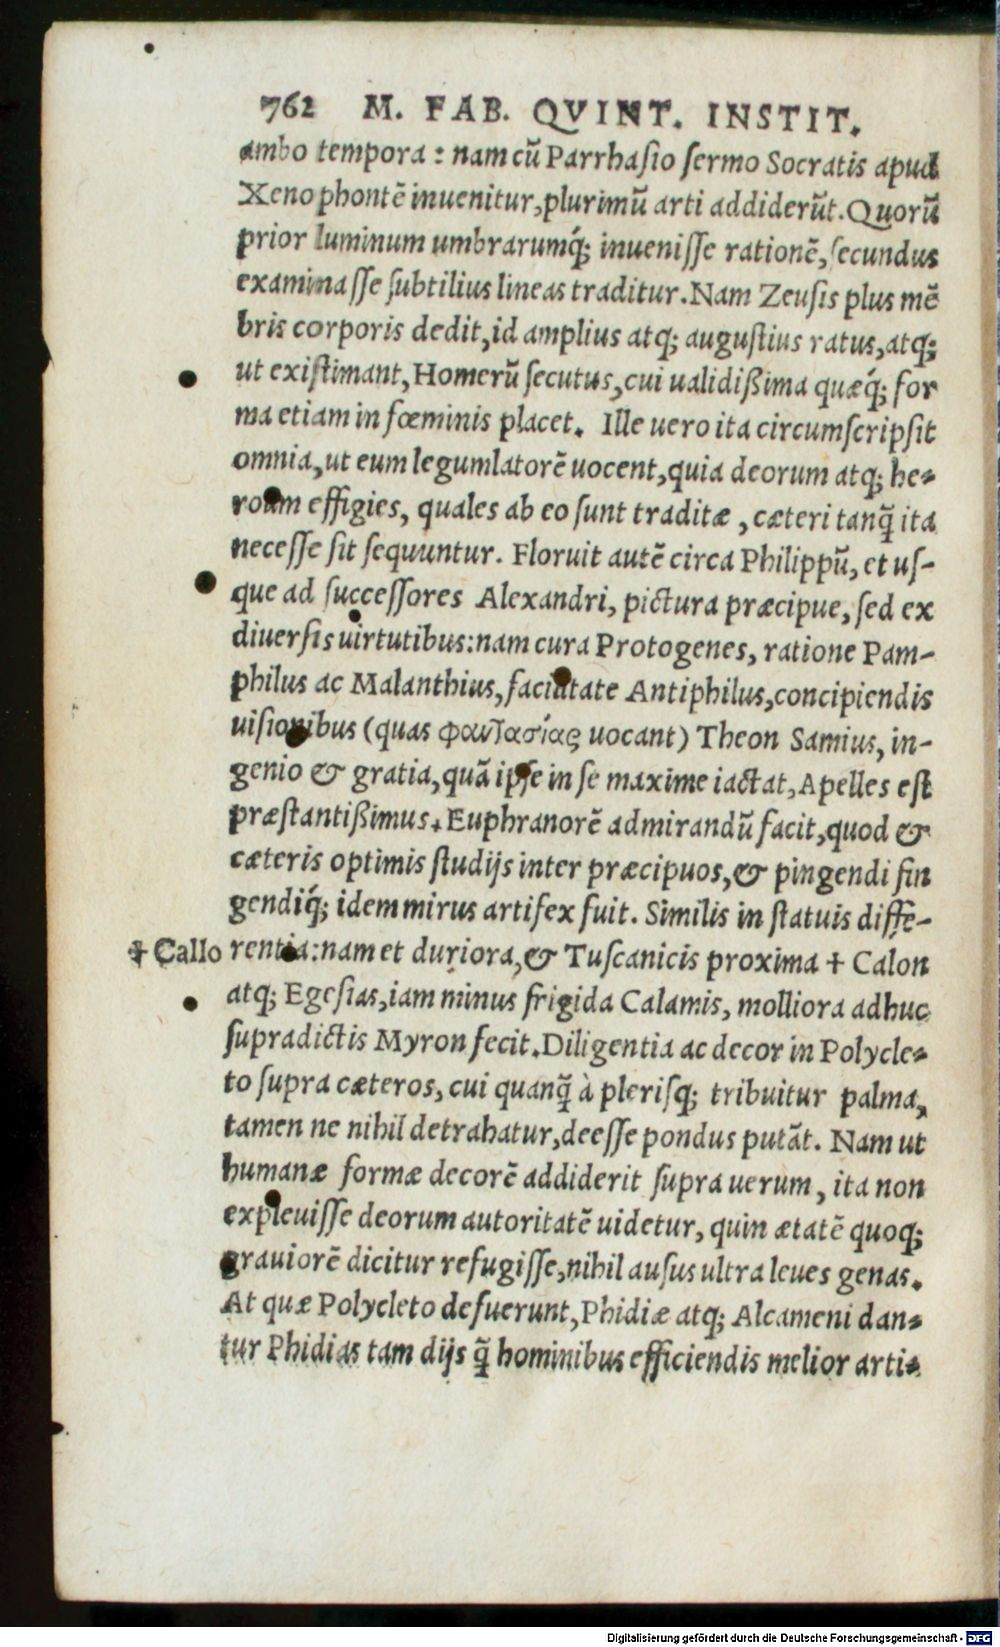 762 M. FAB. QVINT. INSTIT.
ambo tempora : nam cũ Parrhaſio ſermo Socratis apud
Xenophontẽ inuenitur, plurimũ arti addiderũt. Quorũ
prior luminum umbrarumq́; inueniſſe rationẽ, ſecundus
examinaſſe ſubtilius lineas traditur. Nam Zeuſis plus mẽ
bris corporis dedit, id amplius atq; auguſtius ratus, atq;
ut exiſtimant, Homerũ ſecutus, cui ualidißima quæq́; for
ma etiam in fœminis placet. Ille uero ita circumſcripſit
omnia, ut eum legumlatorẽ uocent, quia deorum atq; he-
roum effigies, quales ab eo ſunt traditæ, cæteri tanq̃ ita
neceſſe ſit ſequuntur. Floruit autẽ circa Philippũ, et uſ-
que ad ſucceſſores Alexandri, pictura præcipue, ſed ex
diuerſis uirtutibus: nam cura Protogenes, ratione Pam-
philus ac Malanthius, facilitate Antiphilus, concipiendis
uiſionibus (quas φαντασίας uocant) Theon Samius, in-
genio & gratia, quã ipſe in ſe maxime iactat, Apelles eſt
præſtantißimus. Euphranorẽ admirandũ facit, quod &
cæteris optimis ſtudijs inter præcipuos, & pingendi fin
gendiq́; idem mirus artifex fuit. Similis in ſtatuis diffe-
‡ Callo rentia: nam et duriora, & Tuſcanicis proxima ‡ Calon
atq; Egeſias, iam minus frigida Calamis, molliora adhuc
ſupradictis Myron fecit. Diligentia ac decor in Polycle-
to ſupra cæteros, cui quanq̃ à pleriſq; tribuitur palma,
tamen ne nihil detrahatur, deeſſe pondus putãt. Nam ut
humanæ formæ decorẽ addiderit ſupra uerum, ita non
expleuiſſe deorum autoritatẽ uidetur, quin ætatẽ quoq;
grauiorẽ dicitur refugiſſe, nihil auſus ultra leues genas.
At quæ Polycleto defuerunt, Phidiæ atq; Alcameni dan-
tur Phidias tam dijs q̃ hominibus efficiendis melior arti-
Digitalisierung gefördert durch die Deutsche Forschungsgemeinschaft - DFG